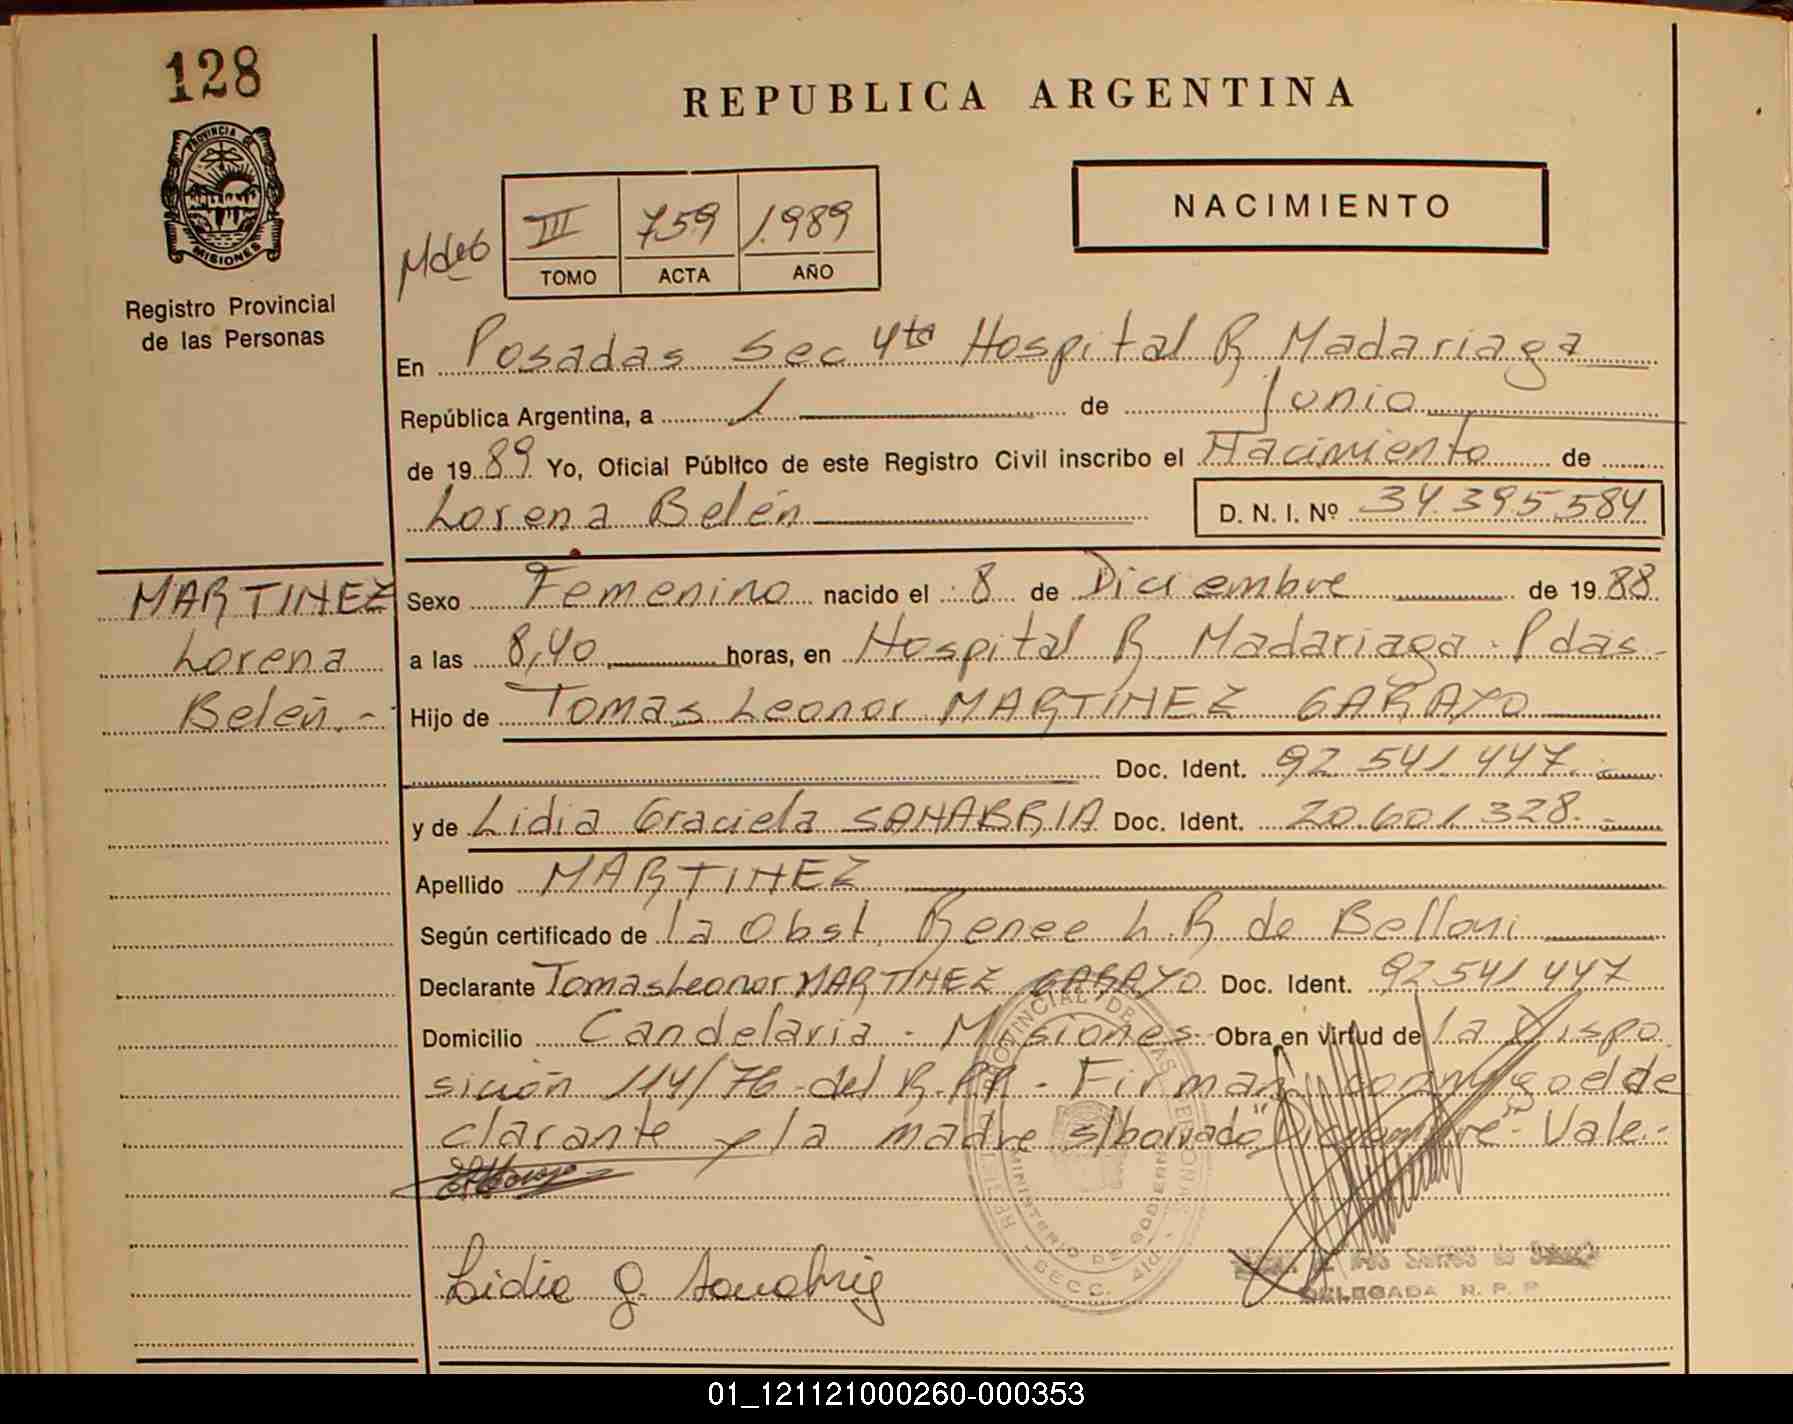 128
PROVINCIA DE
MISIONES
Registro Provincial
de las Personas
REPUBLICA ARGENTINA
NACIMIENTO
III 759 1.989
TOMO ACTA AÑO
En Posadas Sec 4ta Hospital R Madariaga
República Argentina, a 1 de Junio
de 19 89 Yo, Oficial Público de este Registro Civil inscribo el Nacimiento de
Lorena Belén D. N. I. Nº 34.395.584
MARTINEZ
Lorena
Belén.-
Sexo Femenino nacido el 8 de Diciembre de 19 88
a las 8,40 horas, en Hospital R. Madariaga - Pdas -
Hijo de Tomas Leonor MARTINEZ GARAYO
Doc. Ident. 92.541.447.-
y de Lidia Graciela SANABRIA Doc. Ident. 20.601.328.-
Apellido MARTINEZ
Según certificado de la Obst. Renee L.R de Belloni
Declarante Tomas Leonor MARTINEZ GARAYO Doc. Ident. 92.541.447
Domicilio Candelaria - Misiones - Obra en virtud de la Dispo
sición 114/76 - del R.P.P. - Firman conmigo el de
clarante y la madre s/borrado "Diciembre" - Vale.-
Lidia G. Sanabria
MINISTERIO DE GOBIERNO
DELEGADA R. P. P.
01_121121000260-000353